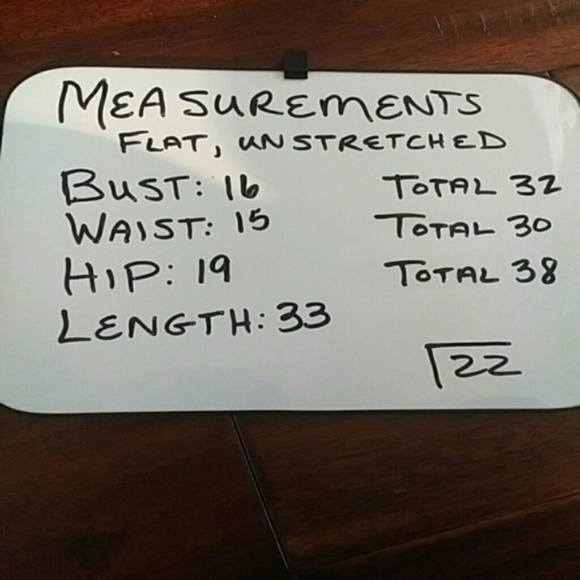 MEASUREMENTS
FLAT, UNSTRETCHED
BUST: 16 TOTAL 32
WAIST: 15 TOTAL 30
HIP: 19 TOTAL 38
LENGTH: 33
22